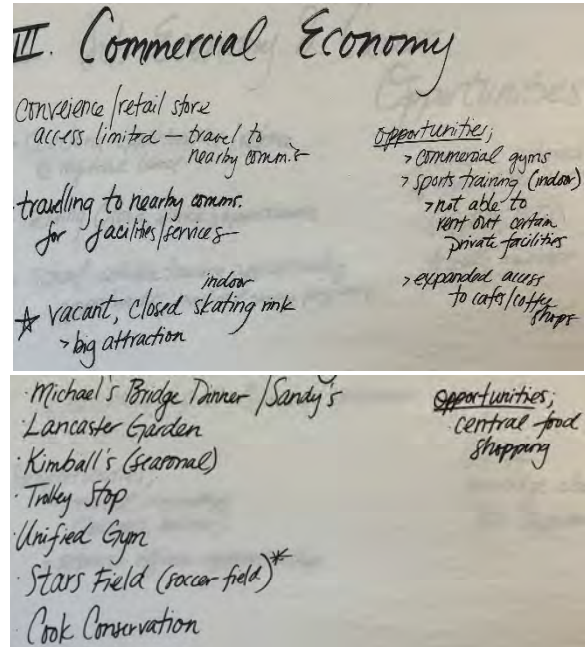 III. Commercial Economy
Conveience/retail store
access limited — travel to
nearby comm.'s
· travelling to nearby comms.
for facilities/services
indoor
☆ vacant, closed skating rink
> big attraction
opportunities;
> commercial gyms
> sports training (indoor)
> not able to
rent out certain
private facilities
> expanded access
to cafes/coffee
shops
· Michael's Bridge Dinner/Sandy's
· Lancaster Garden
· Kimball's (seasonal)
· Trolley Stop
· Unified Gym
· Stars Field (soccer field)*
· Cook Conservation
opportunities;
central food
shopping